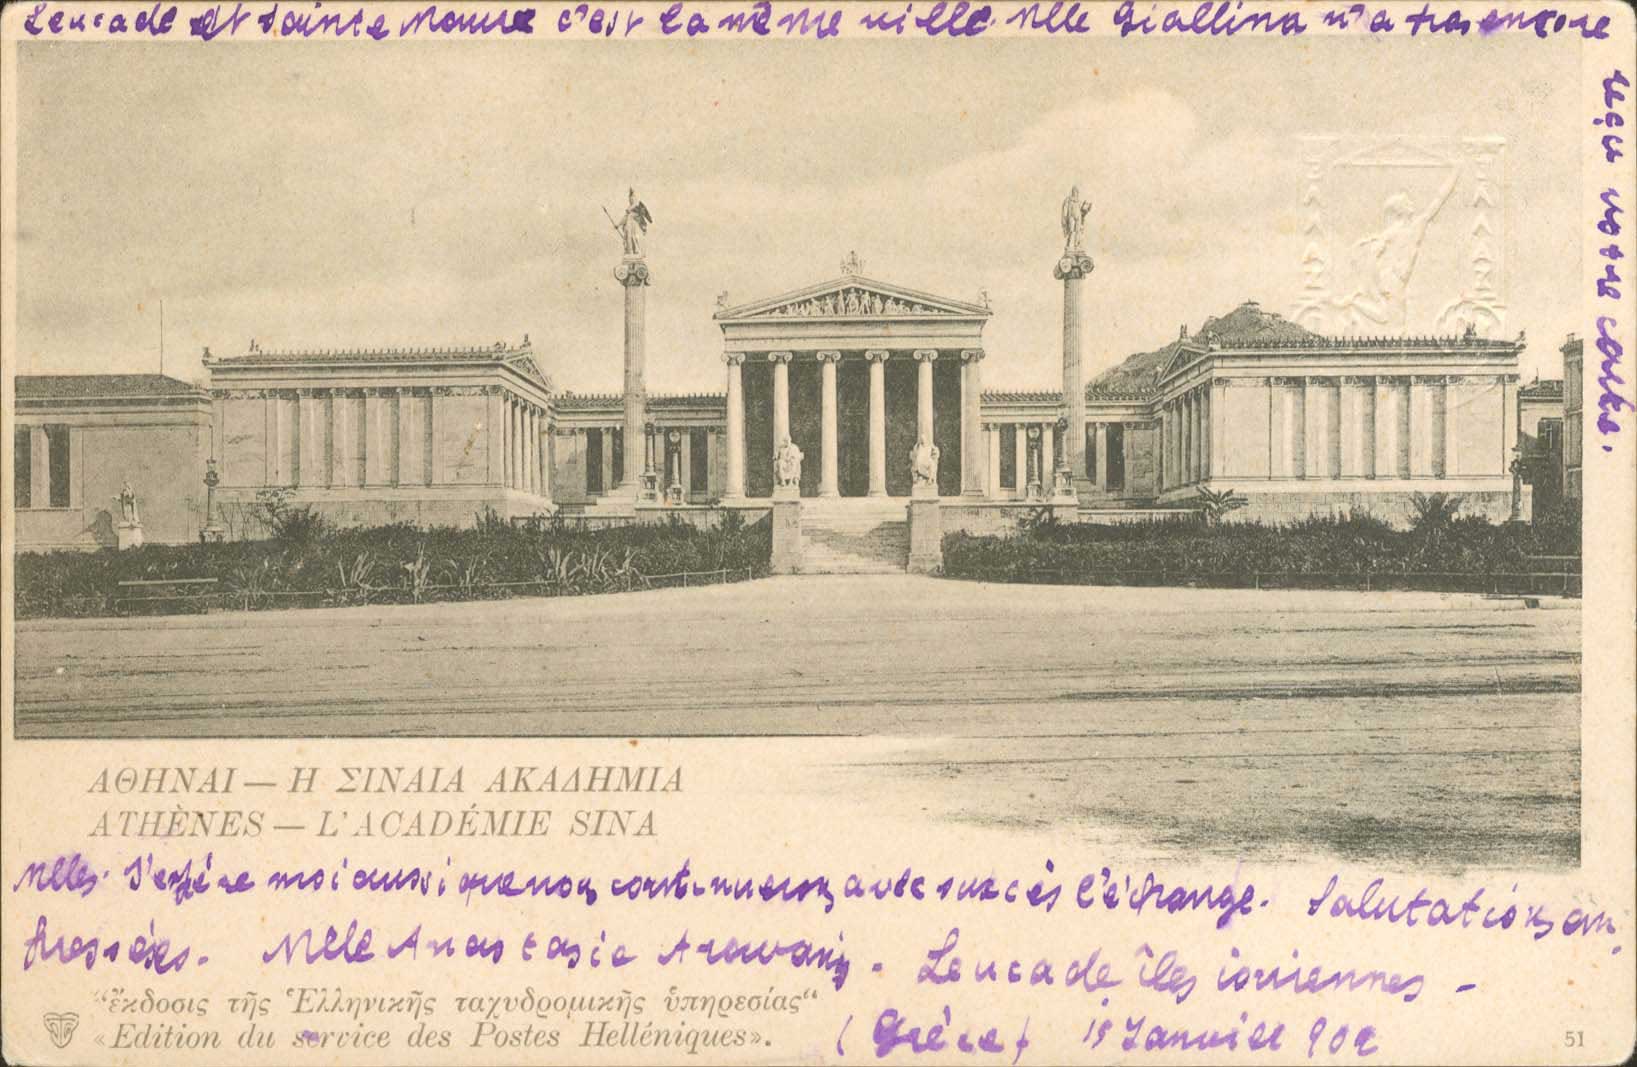 Leucade et Sainte Maure c'est la même ville. Mlle Giallina n'a pas encore
reçu votre cartes.
ΑΘΗΝΑΙ — Η ΣΙΝΑΙΑ ΑΚΑΔΗΜΙΑ
ATHÈNES — L'ACADÉMIE SINA
Mlles. J'espére moi aussi que nous continuerons avec succés l'échange. Salutations em,
pressées. Mlle Anastasie - Leucade îles ioniennes -
"ἔκδοσις τῆς Ἑλληνικῆς ταχυδρομικῆς ὑπηρεσίας"
«Edition du service des Postes Helléniques».
(Gréce) 15 Janvier 902
51